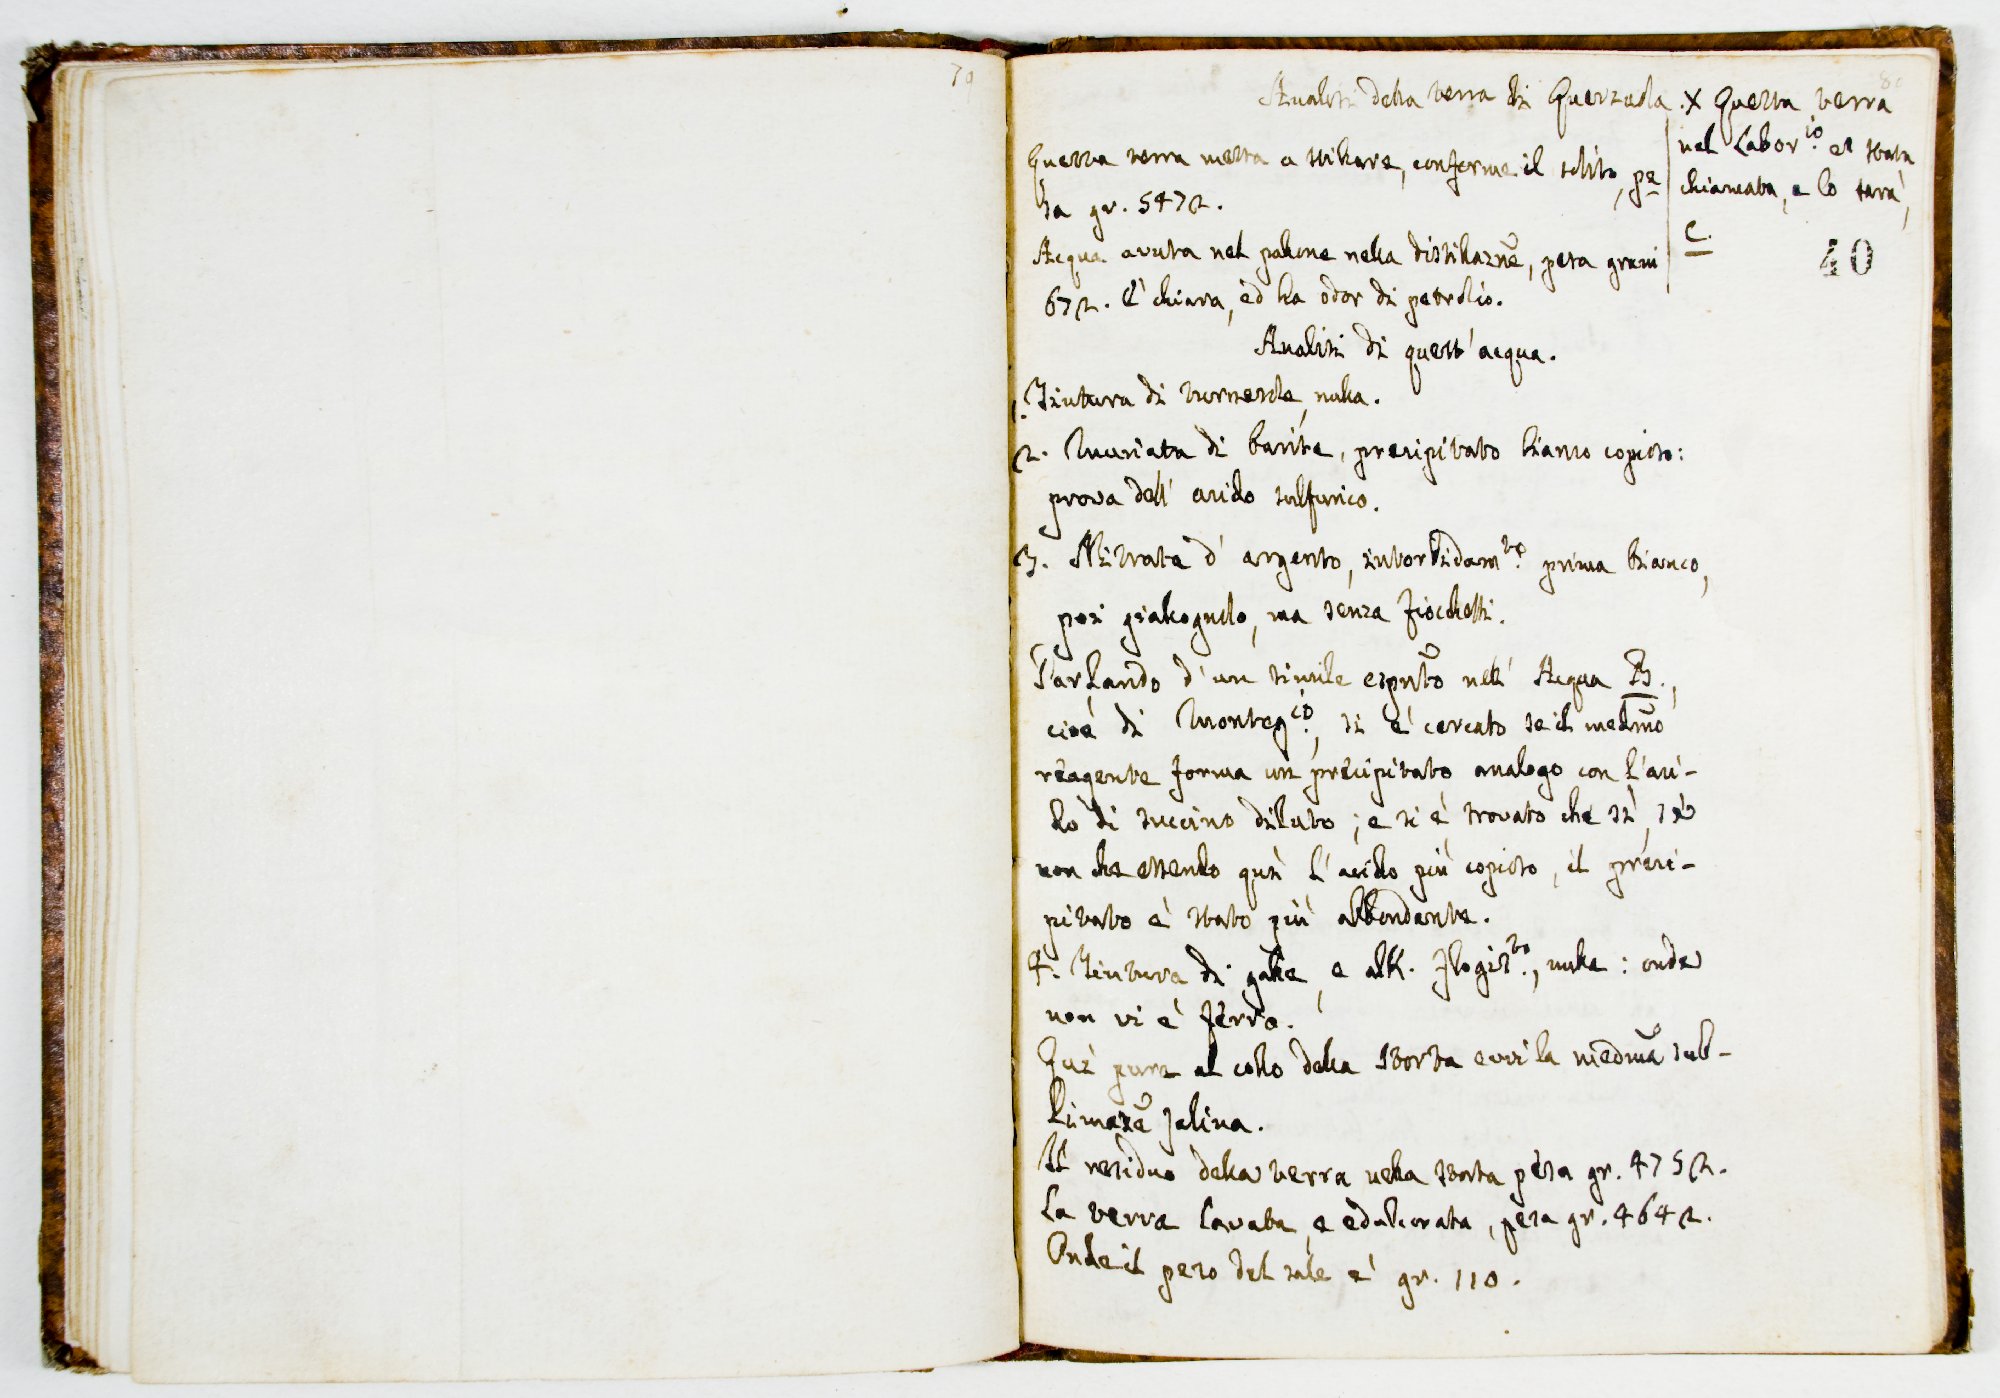 79
80
Analisi della terra di Querzola. X
Questa terra messa a stillare, conforme il solito, pe=
sa gr. 5472.
Acqua avuta nel pallone nella distillaznē, pesa grani
672. È chiara, ed ha odor di petrolio.
Analisi di quest' acqua.
1. Tintura di tornesole, nulla.
2. Muriato di barite, precipitato bianco copioso:
prova dell' acido sulfurico.
3. Nitrato d' argento, intorbidam.to prima bianco,
poi giallognolo, ma senza fiocchetti.
Parlando d' un simile esprto nell' Acqua B.,
cioè di Monteg.io, si è cercato se il medmo
reagente forma un precipitato analogo con l' aci-
do di succino diluto; e si è trovato che sì, se
non che essendo quì l' acido più copioso, il preci-
pitato è stato più abbondante.
4. Tintura di galle, e alk. flogis.to, nulla: onde
non vi è ferro.
Quì pure al collo della storta evvi la medma sub-
limazē salina.
Il residuo della terra nella storta pesa gr. 4752.
La terra lavata, e edulcorata, pesa gr. 4642.
Onde il peso del sale è gr. 110.
X Questa terra
nel Labor.io è stata
chiamata, e lo sarà,
C.
40